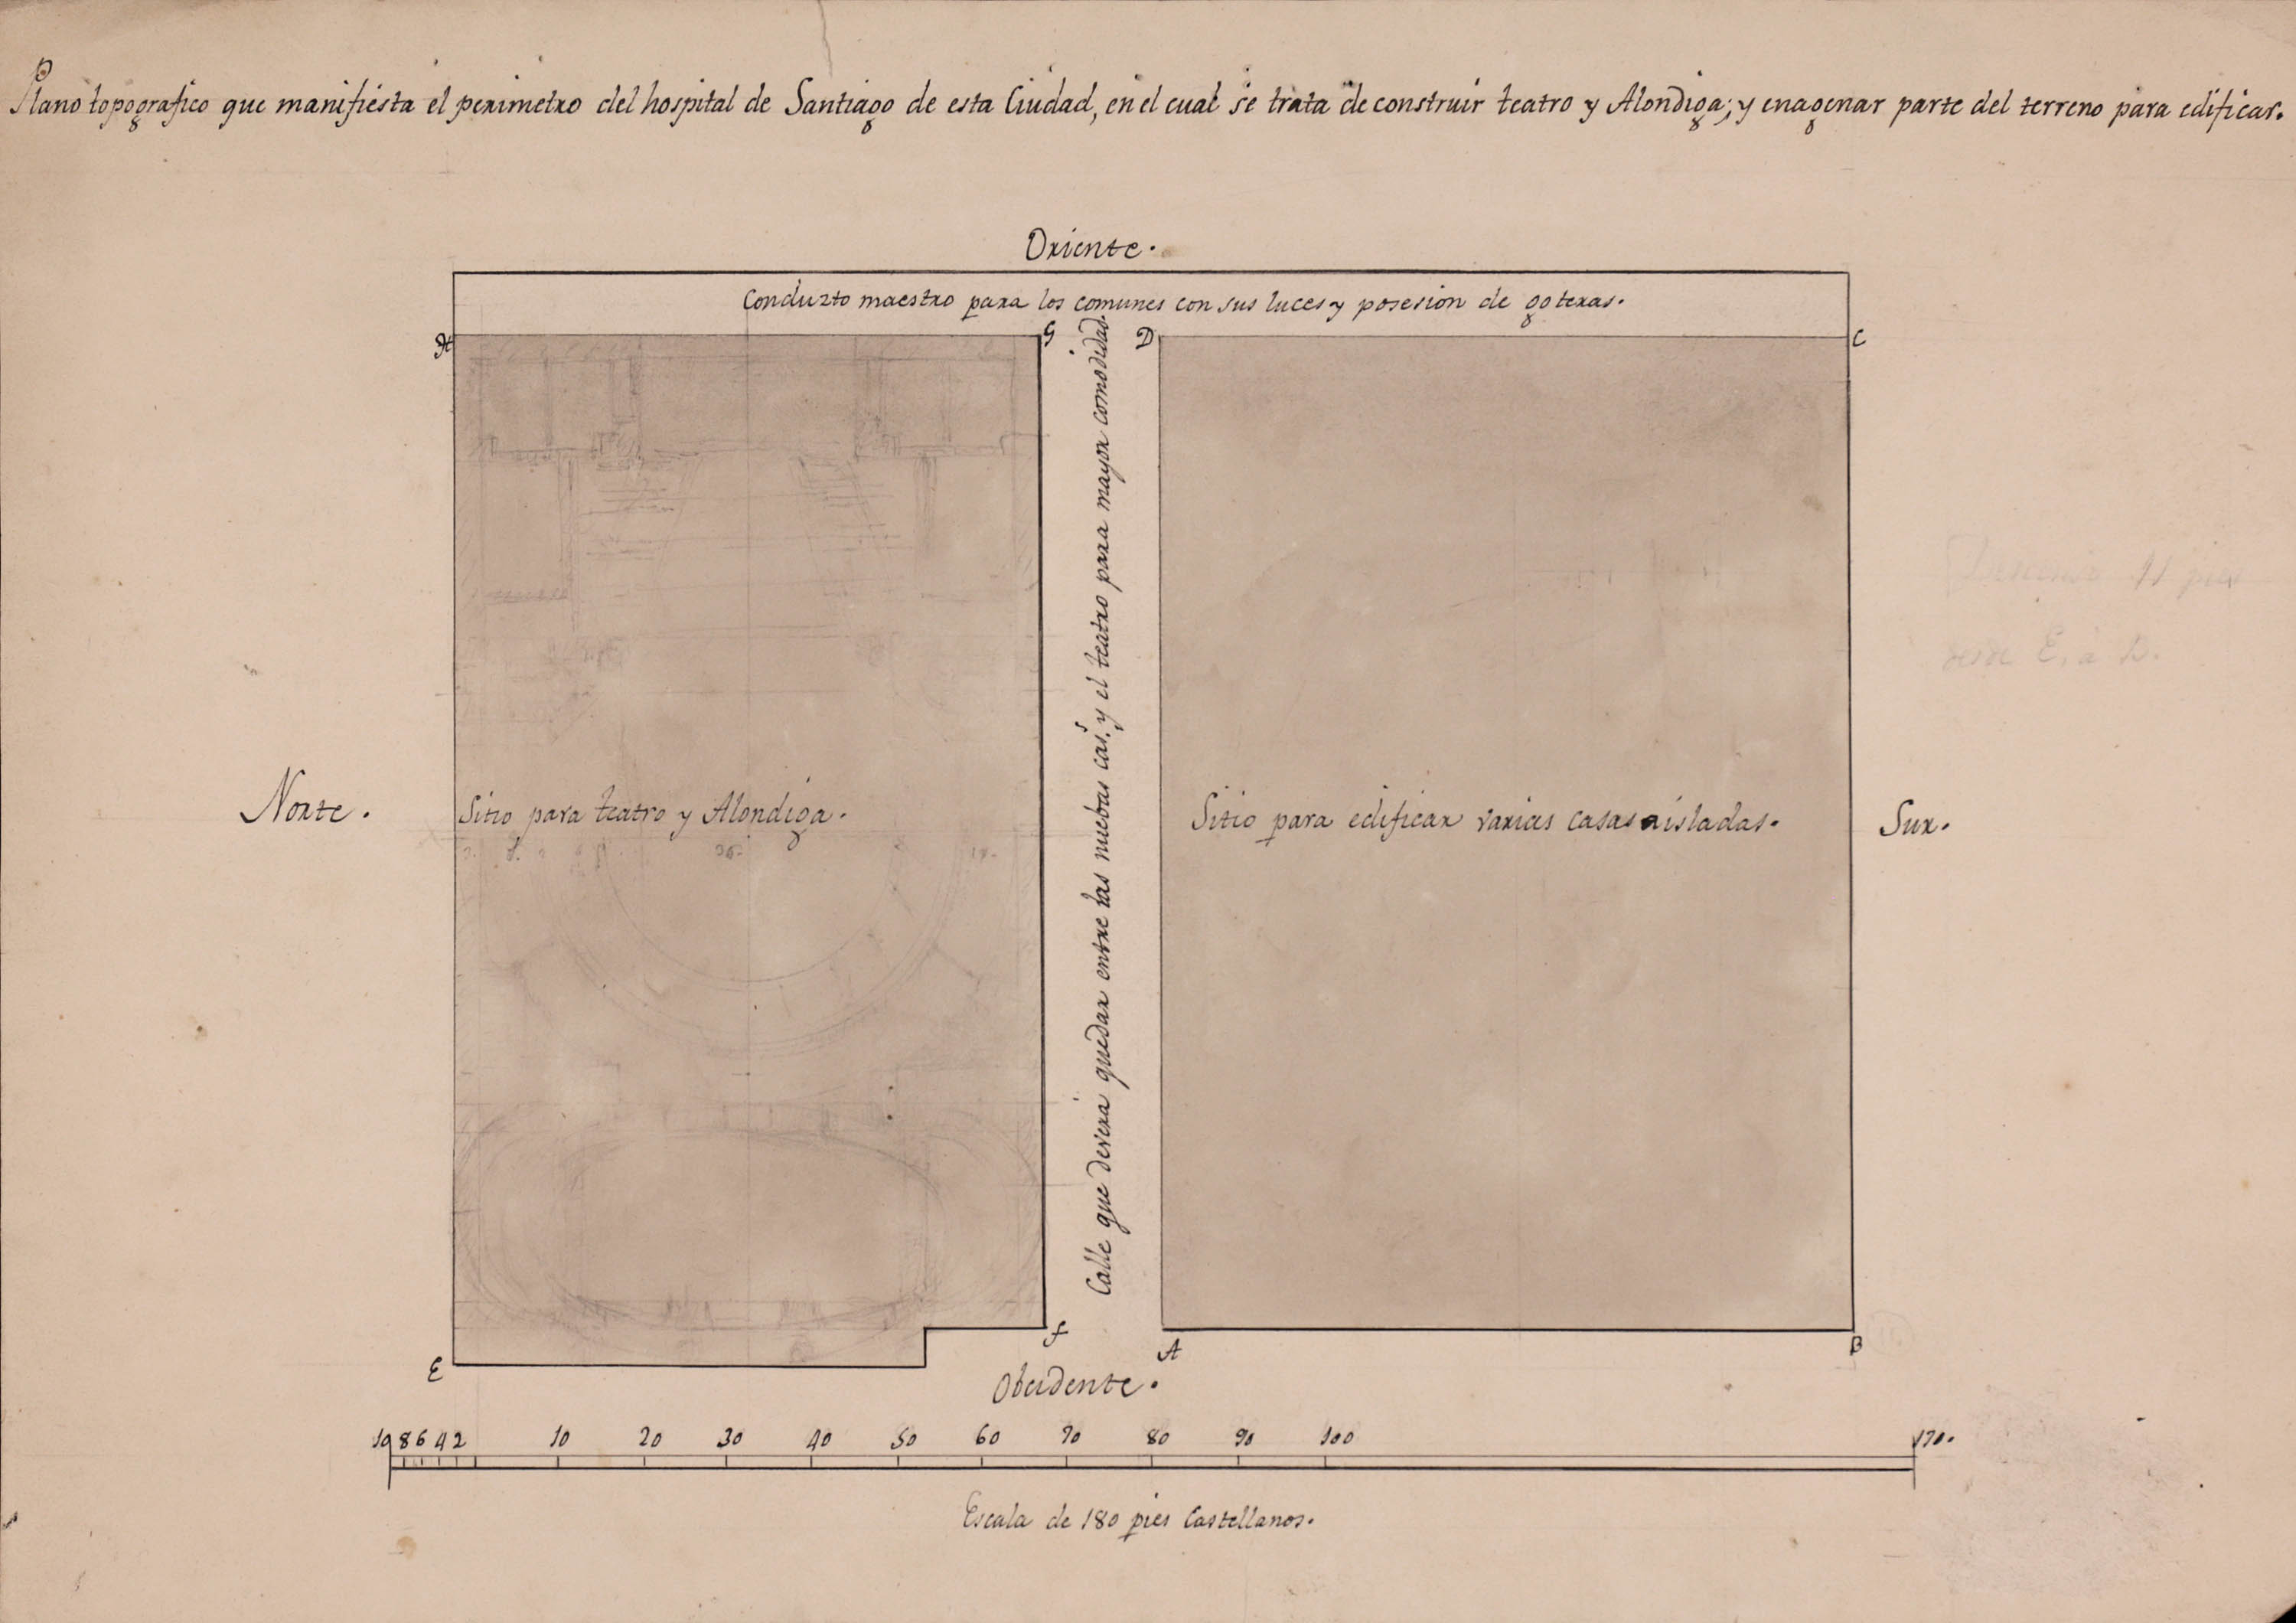 Plano topografico que manifiesta el perimetro del hospital de Santiago de esta Ciudad, en el cual se trata de construir teatro y Alondiga; y enagenar parte del terreno para edificar.
Oriente.
Conduzto maestro para los comunes con sus luces y posesion de goteras.
H
G
D
C
Calle que devera quedar entre las nuebas cas.s y el teatro para mayor comodidad.
Descenso 11 pies
desde E, a B.
Norte.
Sitio para teatro y Alondiga.
Sitio para edificar varias casas aisladas.
Sur.
36
E
F
A
B
Obcidente.
10 8 6 4 2 10 20 30 40 50 60 70 80 90 100 170.
Escala de 180 pies Castellanos.